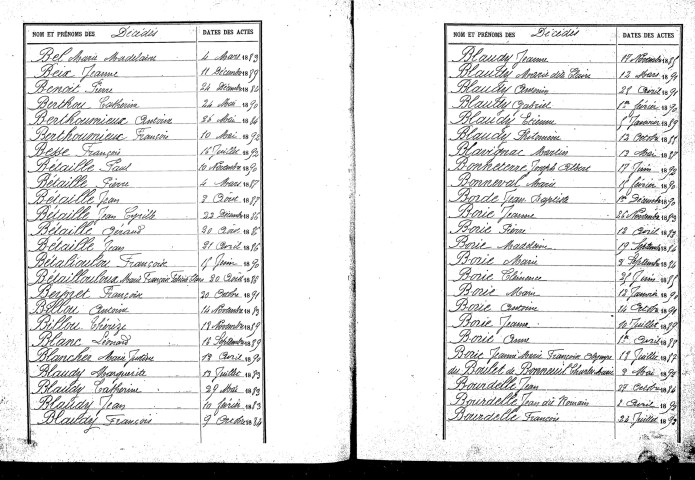 NOM ET PRÉNOMS DES Décédés DATES DES ACTES
Bel Marie Madeleine 4 Mars 1889
Beix Jeanne 11 Décembre 1889
Benoit Pierre 24 Décembre 1884
Berthou Catherine 24 Mai 1890
Berthoumieux Antoine 26 Mai 1884
Berthoumieux François 10 Mai 1890
Besse François Juillet 1892
Bétaille Paul 10 Novembre 1890
Bétaille Pierre 4 Mars 1887
Bétaille Jean 1887
Bétaille Jean Cyrille 22 Décembre 1886
Bétaille Gérard 30
Bétaille Jean 21 Avril 1886
François Juin
Bétaillouloux Marie 20
Bernet François 20 Octobre 1891
Billou Antoine 14 Novembre 1883
Billou Thérèze 18 Novembre 1889
Blanc Léonard 18 Septembre 1889
Blancher Marie Justine 19 Avril 1890
Blaudy Marguerite 13 Juillet 1883
Blaudy Catherine 29 Mai 1883
Blaudy Jean 10 février 1883
Blaudy François 9 Octobre 1884
NOM ET PRÉNOMS DES Décédés DATES DES ACTES
Blaudy Jeanne 17 Novembre 1885
Blaudy Marie dite Claire 12 Mars 1891
Blaudy Antonin 28 Avril 1891
Blaudy Gabriel 1er février 1890
Blaudy Etienne Janvier 1889
Blaudy 12 Octobre 1887
Blavignac Martin 13 Mai 1887
Joseph Albert 17 Juin 1890
Bonneval Marie février 1890
Borde Jean Baptiste 1er Décembre 1890
Borie Jeanne 26 Novembre 1883
Borie Pierre 12 Avril 1883
Borie Madeleine 19 Septembre 1884
Borie Marie 9 Septembre 1884
Borie Clémence Juin 1885
Borie Marie 12 Janvier 1890
Borie Antoine 14 Octobre 1890
Borie Jeanne 10 Juillet 1889
Borie Anne 1er Avril 1889
Borie Jeanne Marie Françoise 18 Juillet 1887
du Boulet de Bonneuil Charles 9 Mai
Bourdelle Jean 27 Octobre 1884
Bourdelle Jean dit Romain 2 Avril 1890
Bourdelle François 24 Juillet 1892